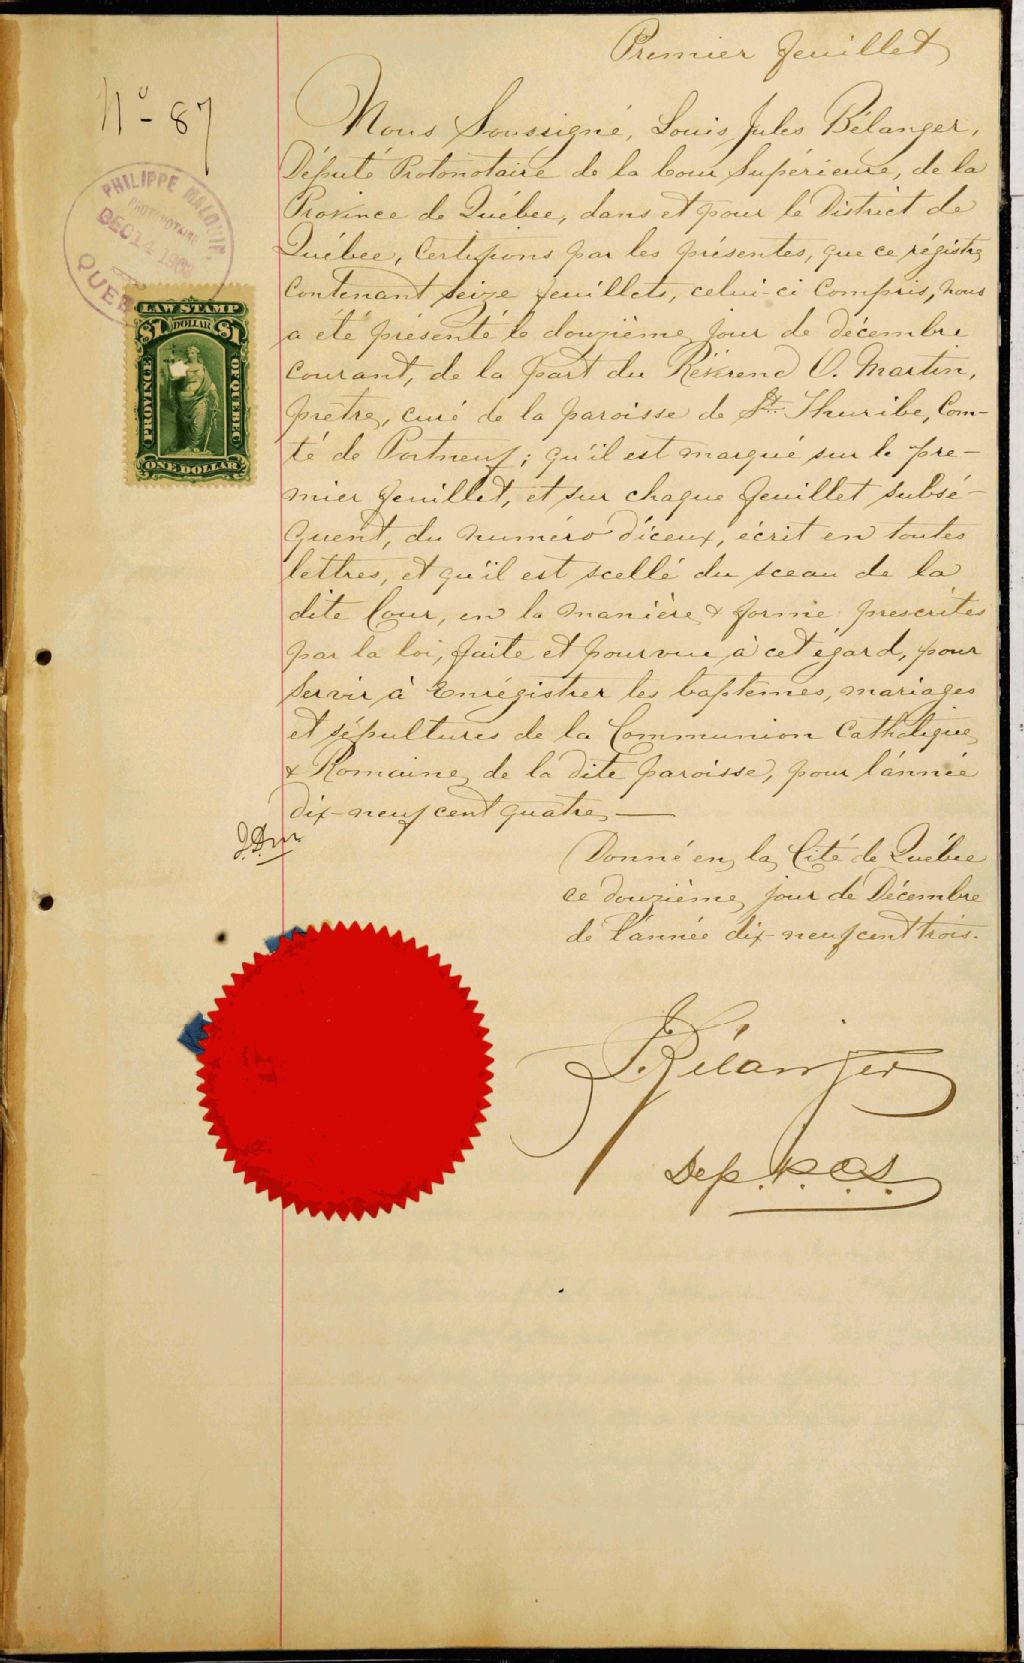 Premier feuillet
No - 87
Nous Soussigné, Louis Jules Bélanger,
Député Protonotaire de la Cour Supérieure, de la
Province de Québec, dans et pour le District de
Québec, Certifions par les présentes, que ce régistre
Contenant seize feuillets, celui-ci Compris, nous
a été présenté le douzième jour de décembre
Courant, de la part du Révérend O. Martin,
prêtre, curé de la paroisse de St. Thuribe, Com-
té de Portneuf; qu'il est marqué sur le pre-
mier feuillet, et sur chaque feuillet subsé-
quent, du numéro d'iceux, écrit en toutes
lettres, et qu'il est scellé du sceau de la
dite Cour, en la manière & forme prescrites
par la loi, faite et pourvue à cet égard, pour
Servir à Enrégistrer les baptêmes, mariages
et sépultures de la Communion Catholique
& Romaine, de la dite paroisse, pour l'année
dix-neuf cent quatre, —
Donné en la Cité de Québec
ce douzième jour de Décembre
de l'année dix-neuf cent trois.
Bélanger
Dep. P.C.S.
PHILIPPE
PROTONOTAIRE
DEC 14 1903
QUEB
LAW STAMP
$1 DOLLAR $1
PROVINCE OF QUEBEC
ONE DOLLAR